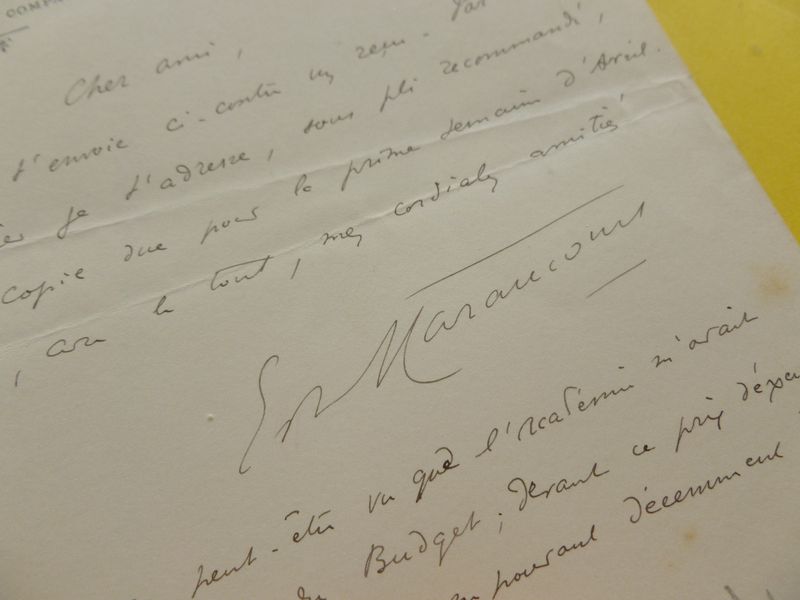 COMPA
Cher ami,
t'envoie ci-contre un reçu. Par
je t'adresse, sous pli recommandé,
copie due pour la prime semaine d'Avril.
, avec le tout, mes cordiales amitiés
Maraucourt
peut-être vu que l'Académie m'avait
du Budget; devant ce prix d'
pouvant décemment